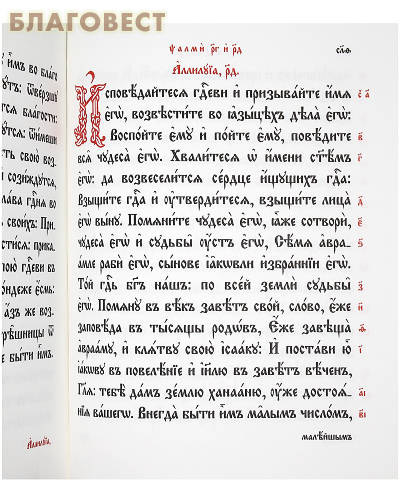 БЛАГОВЕСТ
и҆̀мъ во благо
ѹтъ: ѿвер́зшꙋ
благости:
ѹтсѧ: ѿимеши
ть свою̀ воз.
созиждутсѧ,
лава гд҇нѧ во
свои́хъ: При.
тисѧ: прика.
ю гд҇еви въ
ондеже є҆смь:
азъ же воз.
ѣшницы ѿ
е бы́ти и҆̀мъ.
А҆ллилꙋ́їа,
ѱалми̑ р҃г и҆ р҃д
сл҃ѳ
А҆ллилꙋ́їа, р҃д.
И҆сповѣ́дайтесѧ гд҇еви и҆ призыва́йте и҆́мѧ є҆ а҃
є҆гѡ̀, возвѣсти́те во ꙗ҆зы́цѣхъ дѣла̀ є҆гѡ̀:
Воспо́йте є҆мꙋ̀ и҆ по́йте є҆мꙋ̀, повѣ́дите в҃
всѧ̑ чꙋдеса̀ є҆гѡ̀. Хвали́тесѧ ѡ҆ и҆́мени ст҃ѣ́мъ г҃
є҆гѡ̀: да возвесели́тсѧ се́рдце и҆́щꙋщихъ гд҇а:
Взыщи́те гд҇а и҆ ᲂу҆тверди́тесѧ, взыщи́те лица̀ д҃
є҆гѡ̀ вы́нꙋ. Помѧни́те чꙋдеса̀ є҆гѡ̀, ꙗ҆̀же сотворѝ, є҃
чꙋдеса̀ є҆гѡ̀ и҆ сꙋдьбы̑ ᲂу҆́стъ є҆гѡ̀, Сѣ́мѧ а҆вра- ѕ҃
а́мле рабѝ є҆гѡ̀, сы́нове і҆а́кѡвли и҆збра́ннїи є҆гѡ̀.
То́й гд҇ь бг҃ъ на́шъ: по все́й землѝ сꙋдьбы̑ з҃
є҆гѡ̀. Помѧнꙋ̀ въ вѣ́къ завѣ́тъ сво́й, сло́во, є҆́же и҃
заповѣ́да въ ты́сѧщы родѡ́въ, Є҆́же завѣща̀ ѳ҃
а҆враа́мꙋ, и҆ клѧ́твꙋ свою̀ і҆саа́кꙋ: И҆ поста́ви ю҆̀ і҃
і҆а́кѡвꙋ въ повелѣ́нїе и҆ і҆и҃лю въ завѣ́тъ вѣ́ченъ,
Гл҃ѧ: тебѣ̀ да́мъ зе́млю ханаа́ню, ᲂу҆́же достоѧ́- а҃і
нїѧ ва́шегѡ. Внегда̀ бы́ти и҆̀мъ ма́лымъ число́мъ, в҃і
малѣ́йшымъ